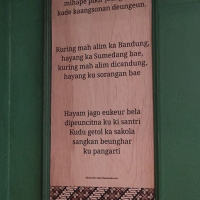 mihape pikir jeung
kade kaangsonan deungeun.
Kuring mah alim ka Bandung,
hayang ka Sumedang bae,
kuring mah alim dicandung,
hayang ku sorangan bae
Hayam jago eukeur bela
dipeuncitna ku ki santri
Kudu getol ka sakola
sangkan beunghar
ku pangarti